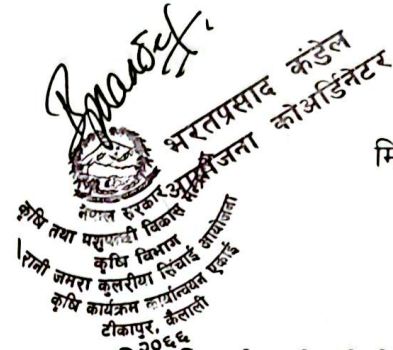 भरतप्रसाद कंडेल
आयोजना कोअर्डिनेटर
मि
नेपाल सरकार
कृषि तथा पशुपन्छी विकास मन्त्रालय
कृषि विभाग
रानी जमरा कुलरीया सिंचाई आयोजना
कृषि कार्यक्रम कार्यान्वयन एकाई
टीकापुर, कैलाली
२०६६